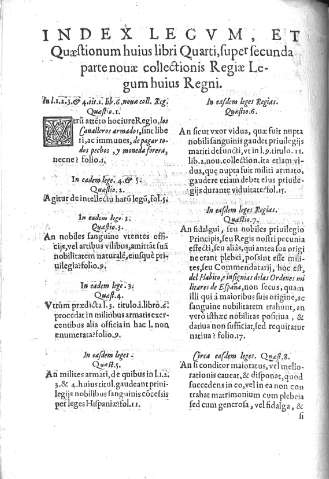 INDEX LEGVM, ET
Quæstionum huius libri Quarti, super secunda
parte nouæ collectionis Regiæ Le-
gum huius Regni.
In l.1.2.3. & 4. tit.1. lib.6. nouæ coll. Reg.
Quæstio.1.
VTrũ attẽto hoc iure Regio, los
Caualleros armados, sinc libe
ri, ac immunes, de pagar to-
dos pechos, y moneda forera,
nec ne? folio.1.
In eadem lege. 4. & 5.
Quæstio.2.
Agitur de intellectu harũ legũ, fol.5.
In eadem lege. 3.
Quæstio.3.
An nobiles sanguine vtentes offi-
cijs, vel artibus vilibus, amittãt suã
nobilitatem naturalẽ, eiusquè pri-
uilegia? folio.9.
In eadem lege .3.
Quæst.4.
Vtrùm prædicta l.3. titulo.1. libro.6.
procedat in milibus armatis exer-
centibus alia officia in hac l. non
enumerata? folio.9.
In easdem leges
Quæst.5.
An milites armati, de quibus in l.1.2.
3. & 4. huius titul. gaudeant priui-
legijs nobilibus sanguinis cõcessis
per leges Hispaniæ? fol.11.
In easdem leges Regias.
Quæstio.6.
An sicut vxor vidua, quæ fuit nupta
nobili sanguinis gaudet priuilegijs
mariti defuncti, vt in l. titulo. 11.
lib.2. nou. collection. ita etiam vi-
dua, quæ nupta fuit militi armato,
gaudere etiam debeat eius priuile-
gijs durante viduitate? fol.15.
In easdem leges Regias.
Quæstio.7.
An fidalgui, seu nobiles priuilegio
Principis, seu Regis nostri pecunia
effecti, seu aliàs, qui antea sua origi
ne erant plebei, possint esse mili-
tes, seu Commendatarij, hoc est,
del Habito, e insignias de las Ordenes mi
litares de España, nec non secus, quam
illi qui à maioribus suis origine, ac
sanguine nobilitatem habeant, an
verò isthæc nobilitas positiua, &
datiua non sufficiat, sed requiratur
natiua? folio.17.
Circa easdem leges. Quæst.8.
An si conditor maioratus, vel melio-
rationis caueat, & disponat, quod
succedens in eo, vel in ea non con
trahat matrimonium cum plebeia
sed cum generosa, vel fidalga, &
si